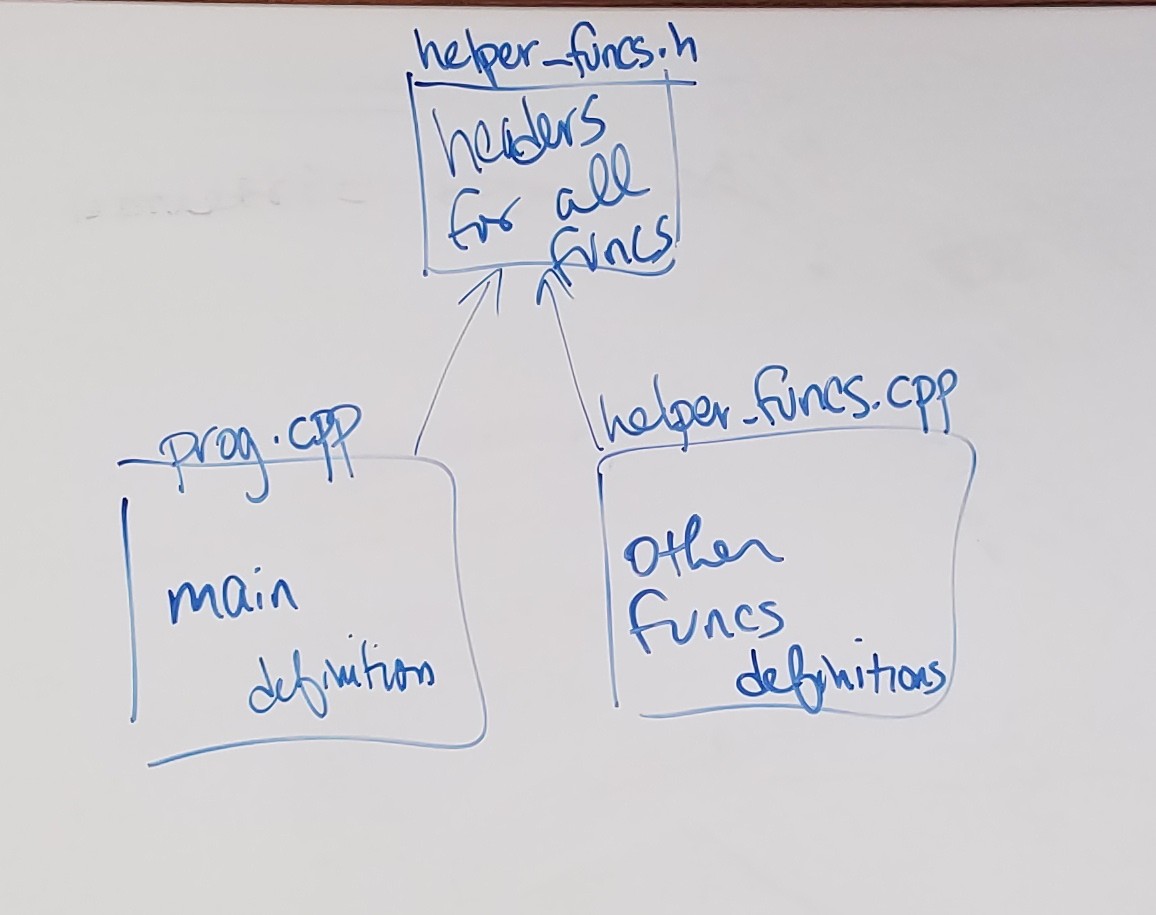 helper_funcs.h
headers
for all
funcs
prog.cpp
main
definition
helper_funcs.cpp
other
funcs
definitions